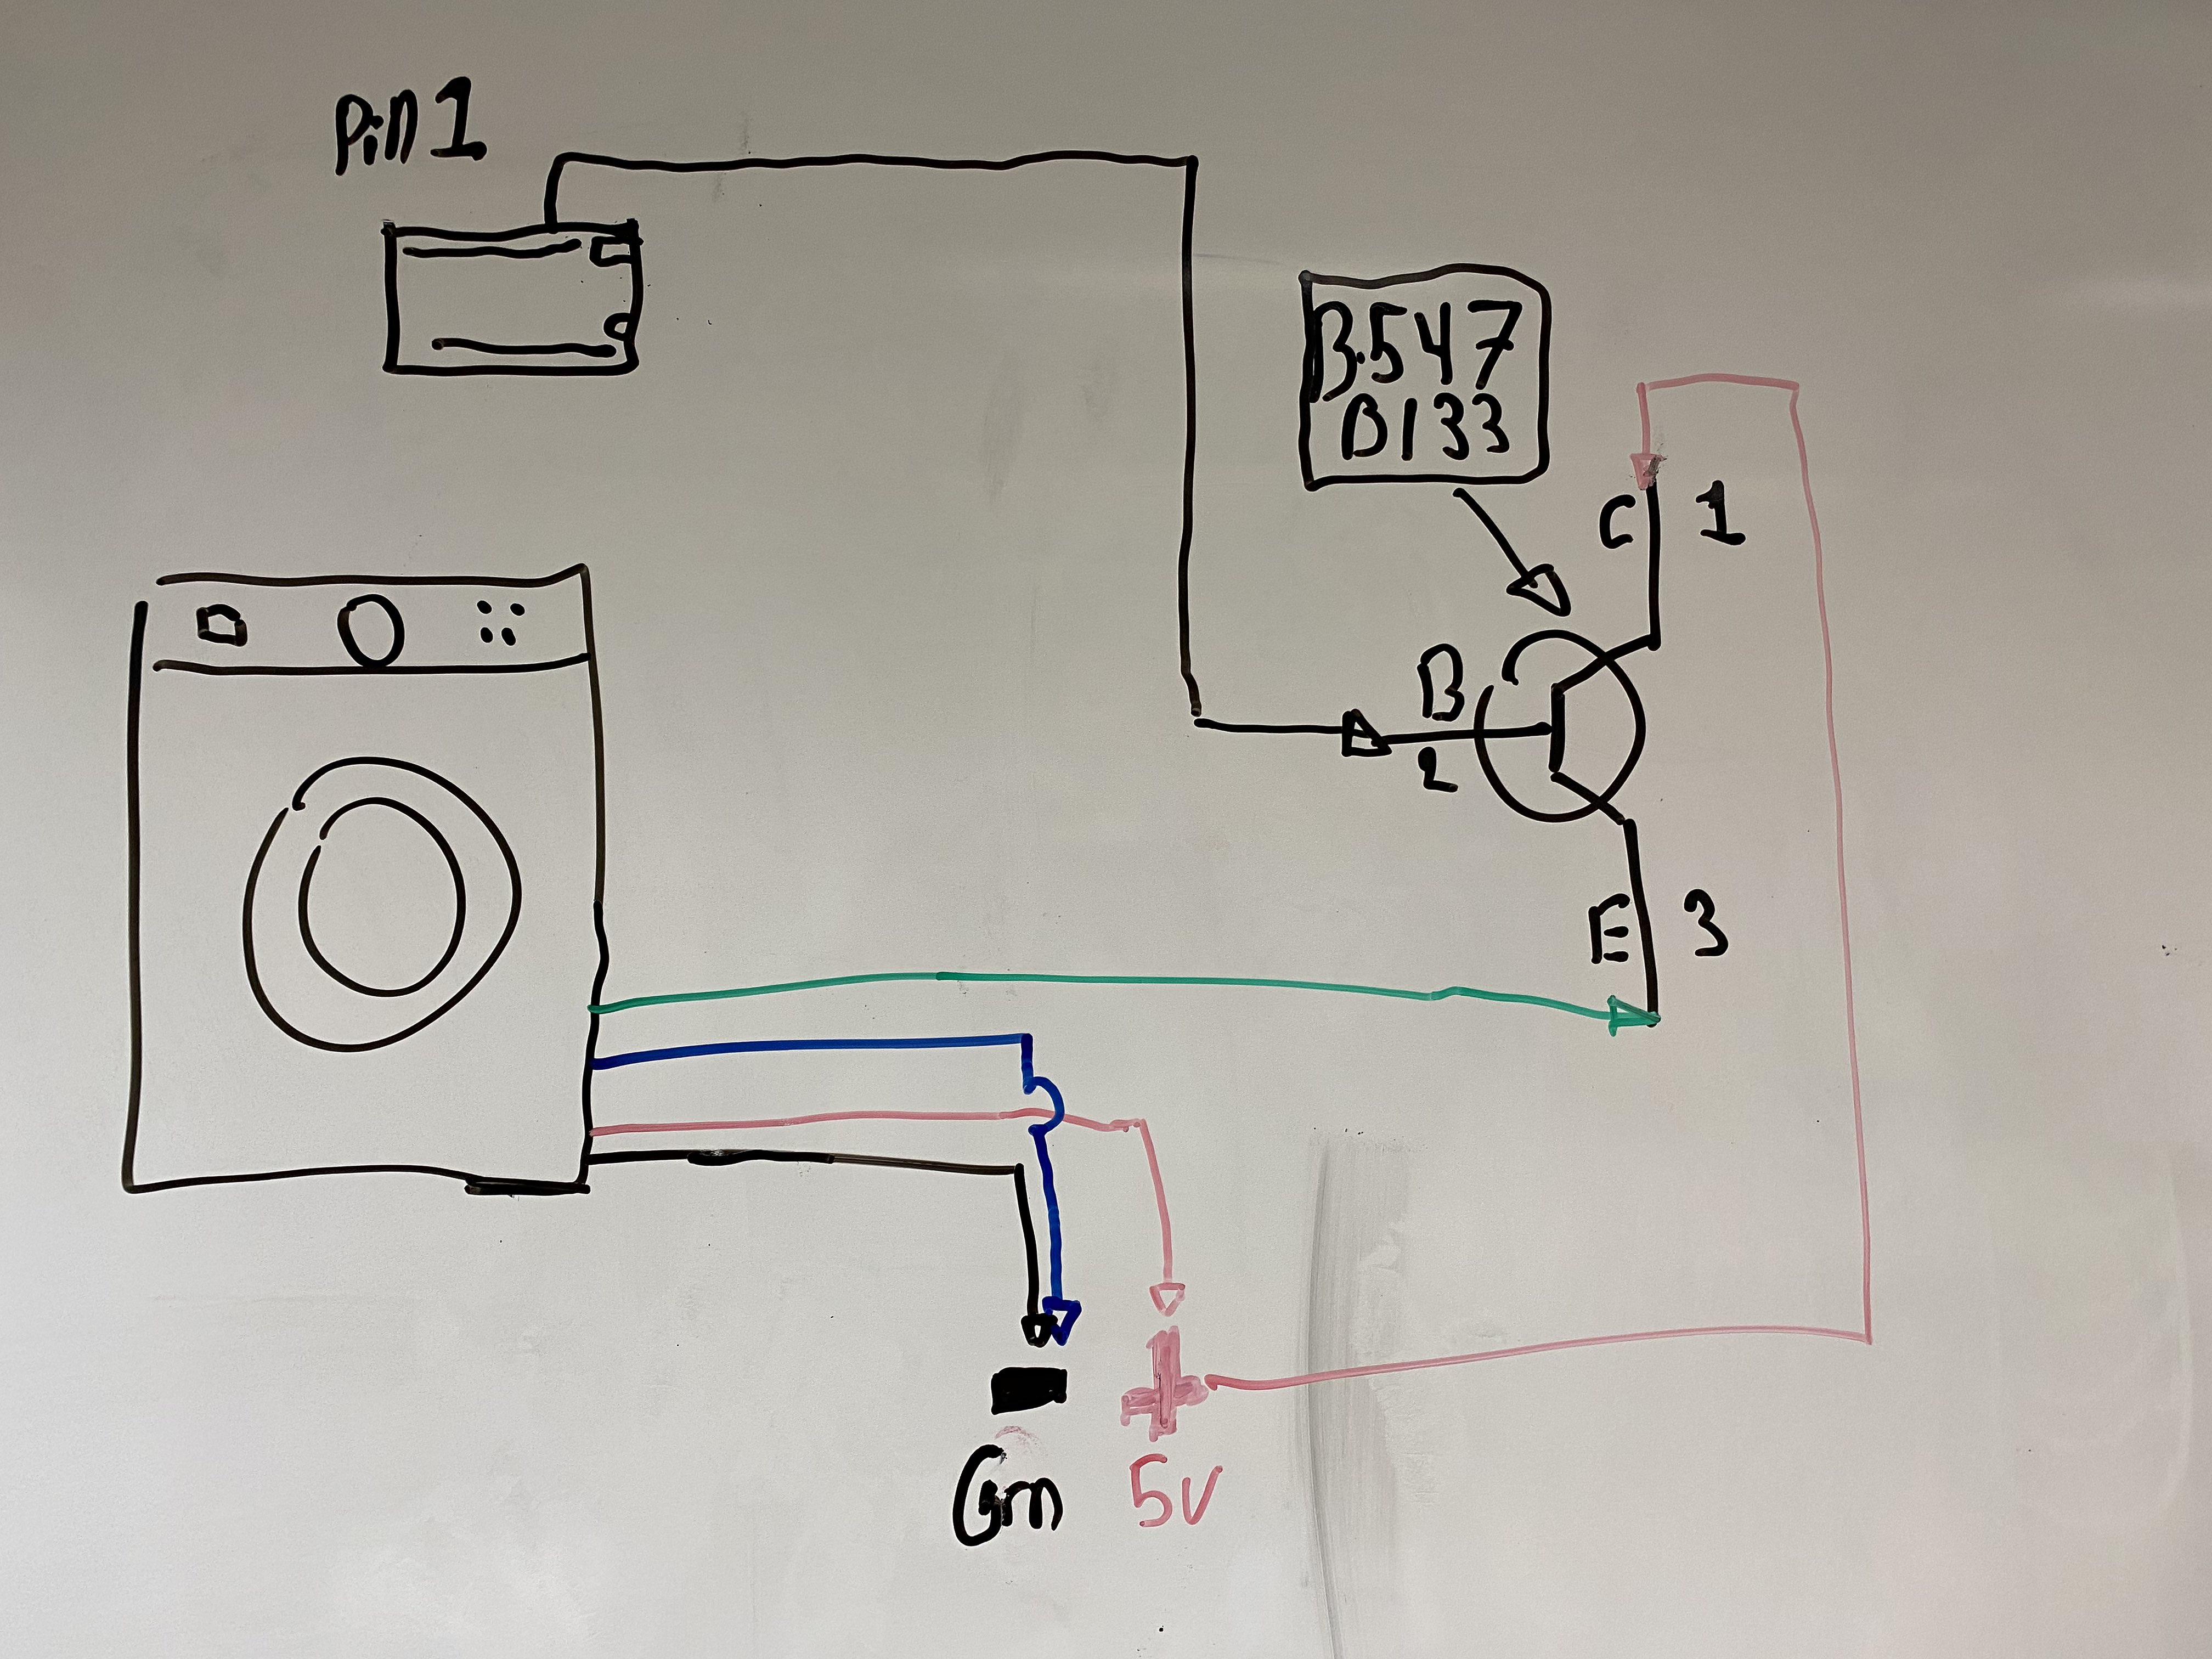 Pin 1
B.547
B133
C 1
B
2
E 3
Grn
5V